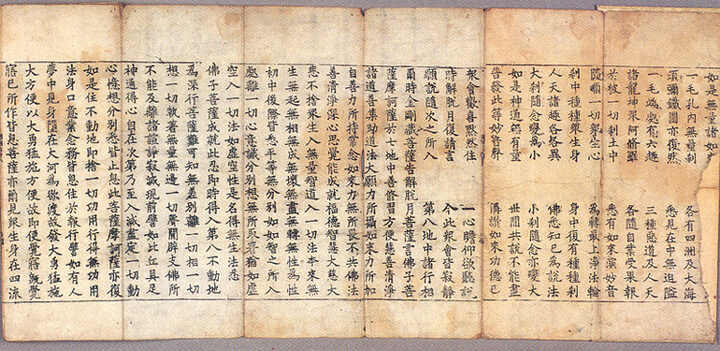 如是無量諸如
一毛孔內無量剎　各有四洲及大海
須彌鐵圍亦復然　悉見在中無迫隘
一毛端處有六趣　三種惡道及人天
諸龍神眾阿脩羅　各隨自業受果報
於彼一切剎土中　悉有如來演妙音
隨順一切眾生心　為轉最上淨法輪
剎中種種眾生身　身中復有種種剎
人天諸趣各各異　佛悉知已為說法
大剎隨念變為小　小剎隨念亦變大
如是神通無有量　世間共說不能盡
普發此等妙音聲　稱讚如來功德已
眾會歡喜默然住　一心瞻仰欲聽說
時解脫月復請言　今此眾會皆寂靜
願說隨次之所入　第八地中諸行相
爾時金剛藏菩薩告解脫月菩薩言佛子菩
薩摩訶薩於七地中善修習方便慧善清淨
諸道善集助道法大願力所攝如來力所加
自善力所持常念如來力無所畏不共佛法
善清淨深心思覺能成就福德智慧大慈大
悲不捨眾生入無量智道入一切法本來無
生無起無相無成無壞無盡無轉無性為性
初中後際皆悉平等無分別如如智之所入
處離一切心意識分別想無所取著猶如虛
空入一切法如虛空性是名得無生法忍
佛子菩薩成就此忍即時得入第八不動地
為深行菩薩難可知無差別離一切相一切
想一切執著無量無邊一切聲聞辟支佛所
不能及離諸諠諍寂滅現前譬如比丘具足
神通得心自在次第乃至入滅盡定一切動
心憶想分別悉皆止息此菩薩摩訶薩亦復
如是住不動地即捨一切功用行得無功用
法身口意業念務皆息住於報行譬如有人
夢中見身墮在大河為欲渡故發大勇猛施
大方便以大勇猛施方便故即便覺寤既覺
寤已所作皆息菩薩亦爾見眾生身在四流